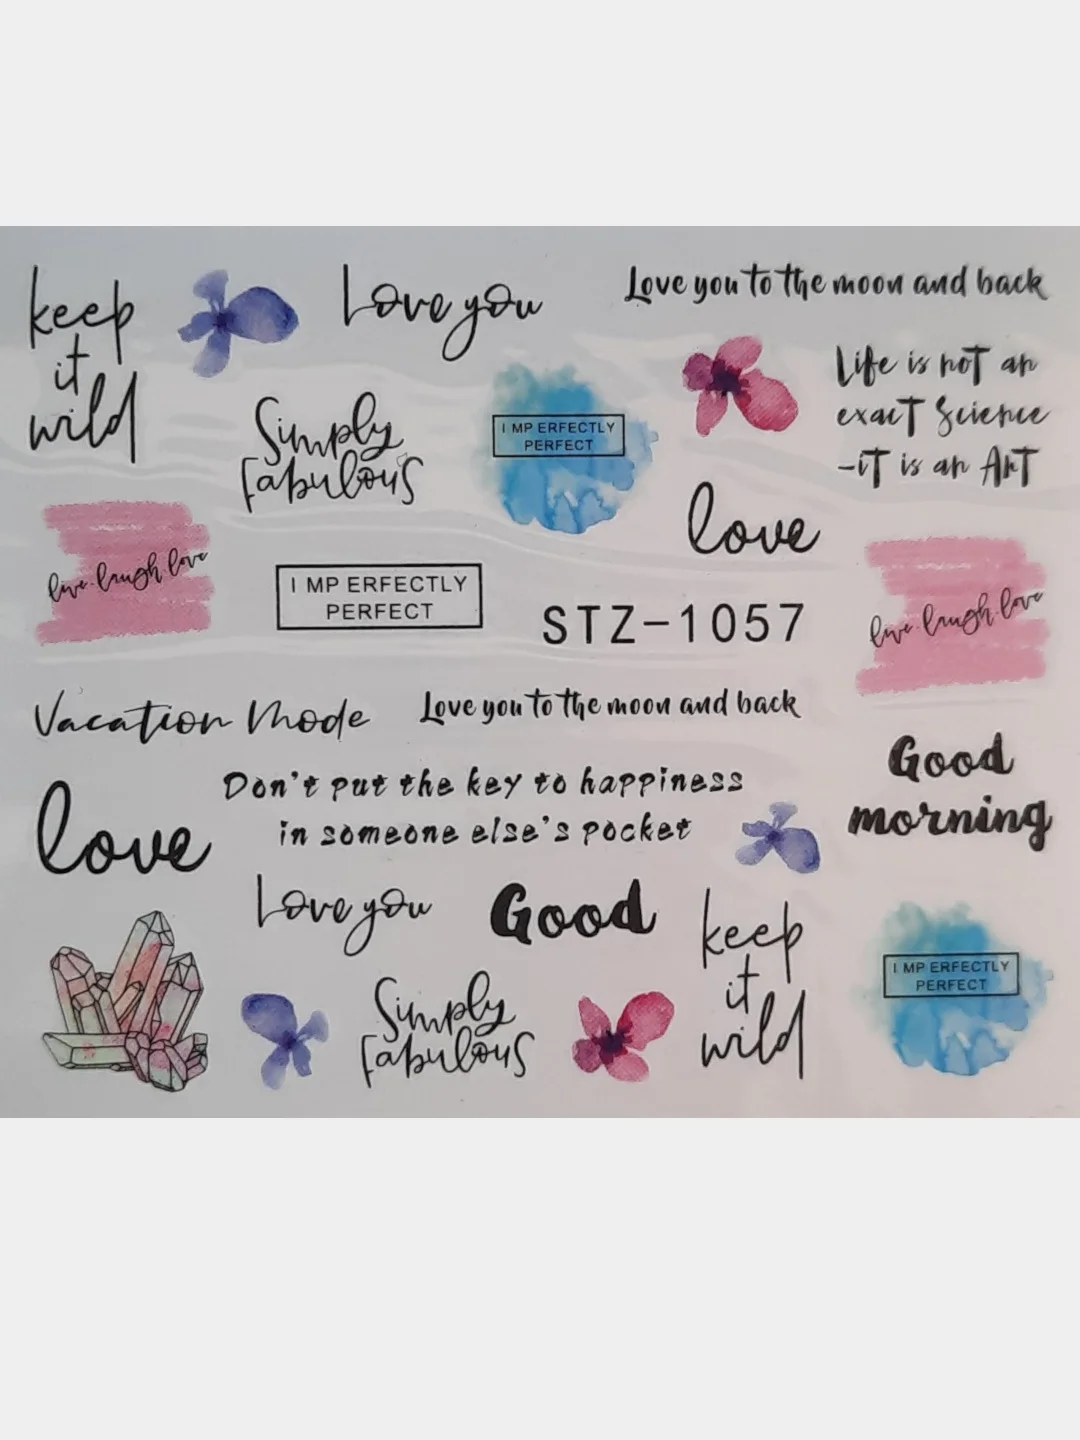 keep
it
wild
Love you
Love you to the moon and back
Simply
fabulous
I MP ERFECTLY
PERFECT
Life is not an
exact Science
-iT is an ArT
love
live.laugh.love
I MP ERFECTLY
PERFECT
STZ-1057
live.laugh.love
Vacation Mode
Love you to the moon and back
Good
morning
love
Don't put the key to happiness
in someone else's pocket
Love you
Good
keep
it
wild
I MP ERFECTLY
PERFECT
Simply
fabulous